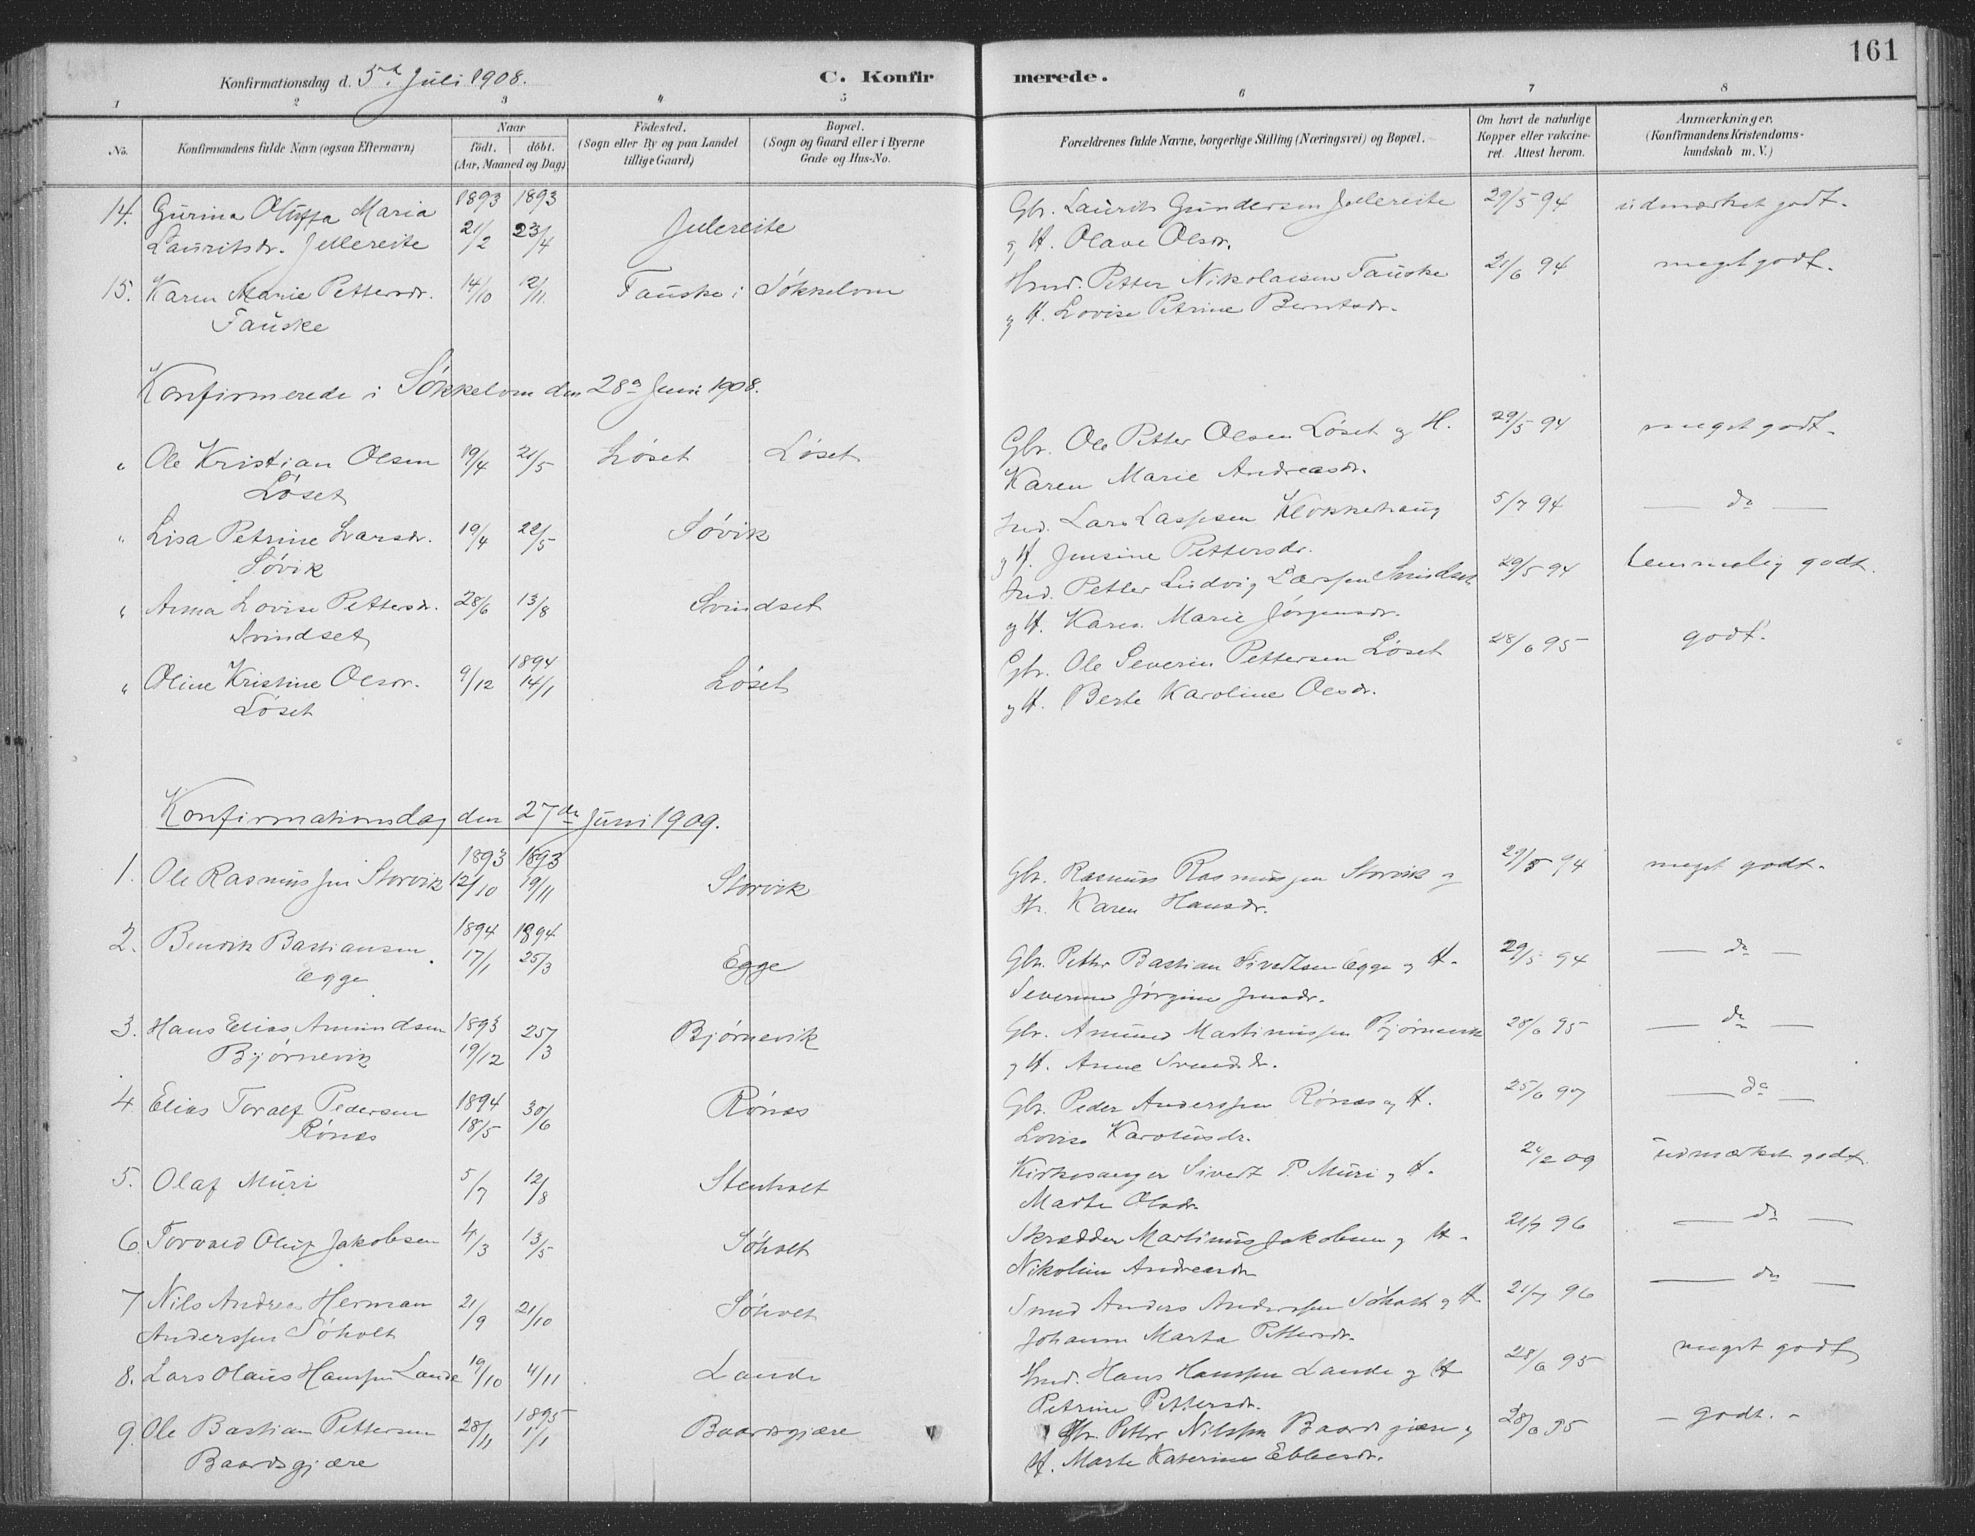 161
Konfirmationsdag d. 5te Juli 1908.
C. Konfirmerede.
1 2 3 4 5 6 7 8
No.
Konfirmandens fulde Navn (ogsaa Efternavn)
Naar
födt. döbt.
(Aar, Maaned og Dag)
Födested.
(Sogn eller By og paa Landet
tillige Gaard)
Bopæl.
(Sogn og Gaard eller i Byerne
Gade og Hus-No.
Forældrenes fulde Navne, borgerlige Stilling (Næringsvei) og Bopæl.
Om havt de naturlige
Kopper eller vakcine-
ret. Attest herom.
Anmærkninger.
(Konfirmandens Kristendoms-
kundskab m. V.)
14. Gurina Oluffa Maria 1893 1893 Gbr. Laurits Gundersen Jellereite 29/5 94 udmærket godt.
Lauritsdr. Jellereite 21/2 23/4 Jellereite g H. Olave Olsdr.
15. Karen Marie Pettersdr. 14/10 12/11 Fauske i Søkkelven Hmd. Petter Nikolaisen Fauske 21/6 94 megt godt.
Fauske g H. Lovise Petrine Berntsdr.
Konfirmerede i Søkkelven den 28de Juni 1908.
" Ole Kristian Olsen 19/4 21/5 Løset Løset Gbr. Ole Petter Olsen Løset g H. 29/5 94 meget godt.
Løset Karen Marie Andreasdr.
" Lisa Petrine Larsdr. 19/4 22/5 Søvik Ind. Lars Laspsen Klokkehaug 5/7 94 — do —
Søvik g H. Jensine Pettersdr.
" Anna Lovise Pettersdr. 28/6 13/8 Svindset Ind. Petter Ludvig Larssen Svindset 29/5 94 temmelig godt.
Svindset g H. Karen Marie Jørgensdr.
" Oline Kristine Olsdr. 9/12 1894 14/1 Løset Gbr. Ole Severin Pettersen Løset 28/6 95 godt.
Løset g H. Berte Karoline Olsdr.
Konfirmationsdag den 27de Juni 1909.
1. Ole Rasmussen Storvik 1893 12/10 1893 19/11 Storvik Gbr. Rasmus Rasmussen Storvik g 29/5 94 meget godt.
H. Karen Hansdr.
2. Bendik Bastiansen 1894 17/1 1894 25/3 Egge Gbr. Petter Bastian Sivertsen Egge g H. 29/5 94 — do —
Egge Severine Jørgine Jensdr.
3. Hans Elias Amundsen 1893 19/12 25/3 Bjørnevik Gbr. Amund Martinussen Bjørnevik 28/6 95 — do —
Bjørnevik g H. Anne Svendsdr.
4. Elias Toralf Pedersen 1894 18/5 30/6 Rønes Gbr. Peder Anderssen Rønes g H. 25/6 97 — do —
Rønes Lovise Karolusdr.
5. Olaf Muri 5/7 12/8 Stenholt Kirkesanger Sivert P. Muri g H. 09 udmærket godt.
Marte Olsdr.
6. Torvald Oluf Jakobsen 4/3 13/5 Søholt Skrædder Martinus Jakobsen g H. 21/7 96 — do —
Nikoline Andreasdr.
7 Nils Andreas Herman 21/9 21/10 Søholt Smed Anders Anderssen Søholt g H. 21/7 96 — do —
Anderssen Søholt Johanne Marta Pettersdr.
8. Lars Olaus Hanssen Lande 19/10 4/11 Lande Hmd. Hans Hanssen Lande g H 28/6 95 meget godt
Petrine Pettersdr.
9. Ole Bastian Pettersen 28/11 1895 1/1 Baardsgjære Gbr. Petter Nilssen Baardsgjære g 28/6 95 – godt. –
Baardsgjære H. Marte Katerine Ebbesdr.